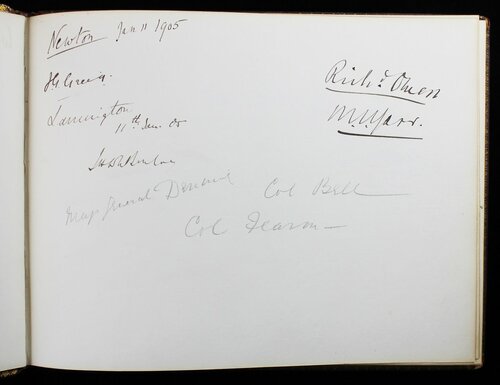 Newton Jan 11 1905
H Green.
Lamington
11th Jan. 05
Richd Owen
Major General
Col Bell
Col Fearon